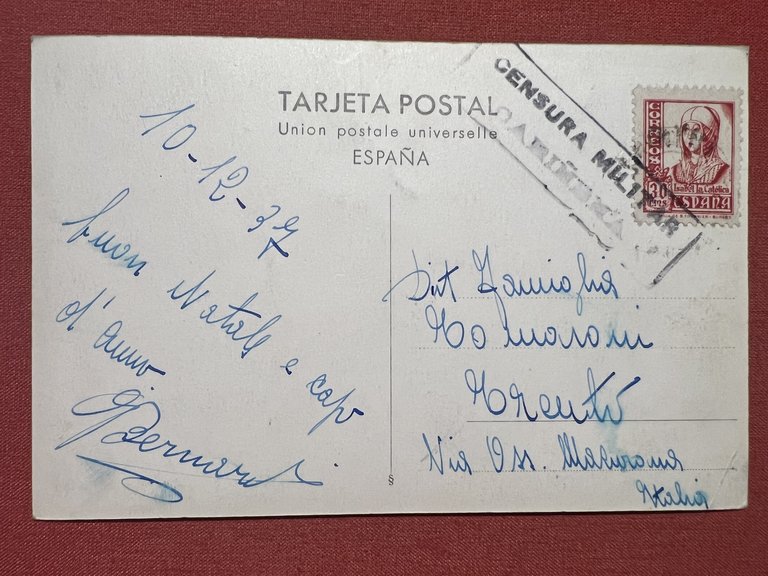 TARJETA POSTAL
Union postale universelle
ESPAÑA
CENSURA MILITAR
CARIÑENA
CORREOS
30
CTS
Isabel la Católica
ESPAÑA
10-12-37
buon Natale e cap
d'anno
GBernardi
Dist Famiglia
Tomasoni
Trento
Via Oss. Mazurana
Italia
§